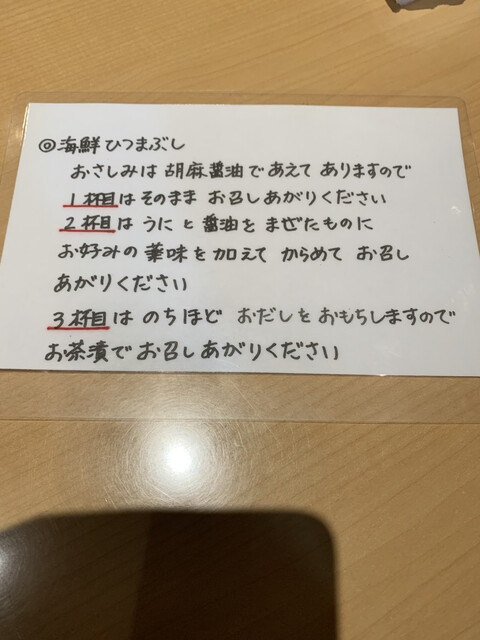 ◎海鮮ひつまぶし
おさしみは胡麻醤油であえてありますので
1杯目はそのままお召しあがりください
2杯目はうにと醤油をまぜたものに
お好みの薬味を加えてからめてお召し
あがりください
3杯目はのちほどおだしをおもちしますので
お茶漬でお召しあがりください